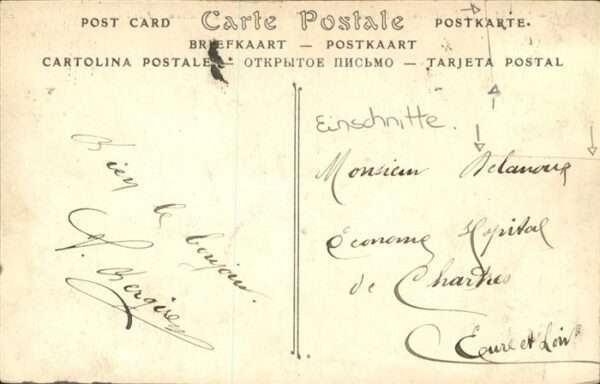 POST CARD Carte Postale POSTKARTE
BRIEFKAART — POSTKAART
CARTOLINA POSTALE — ОТКРЫТОЕ ПИСЬМО — TARJETA POSTAL
Bien le bonjour.
Einschnitte.
Monsieur Delanoue
Économe Hôpital
de Chartres
Eure et Loir